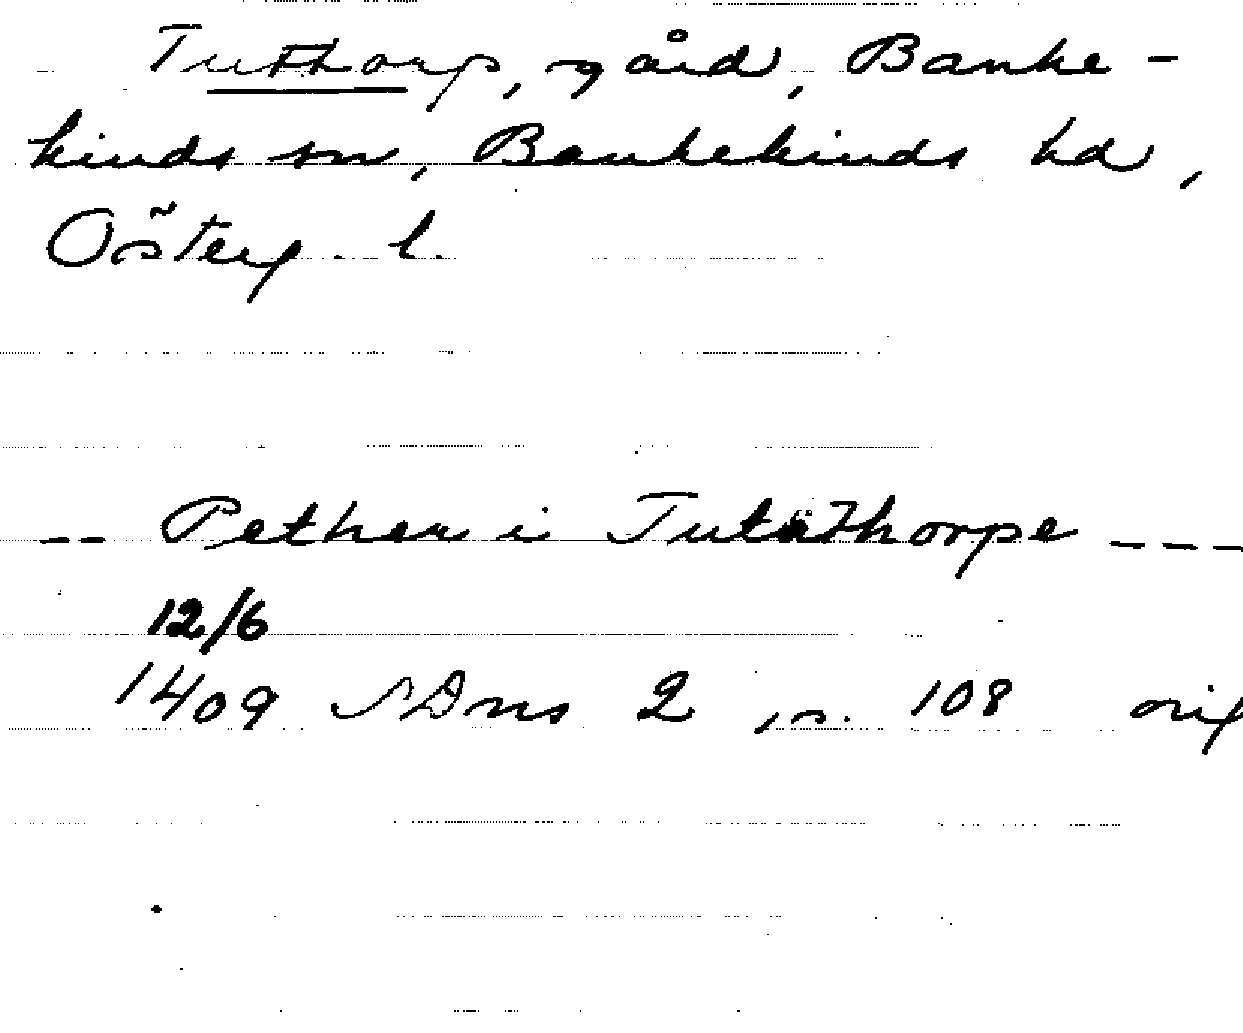 Tutthorp, gård, Banke-
kinds sn, Bankekinds hd,
Österg. l.
-- Pether i Tutathorpe ----
12/6
1409 SDns 2 , s. 108 orig